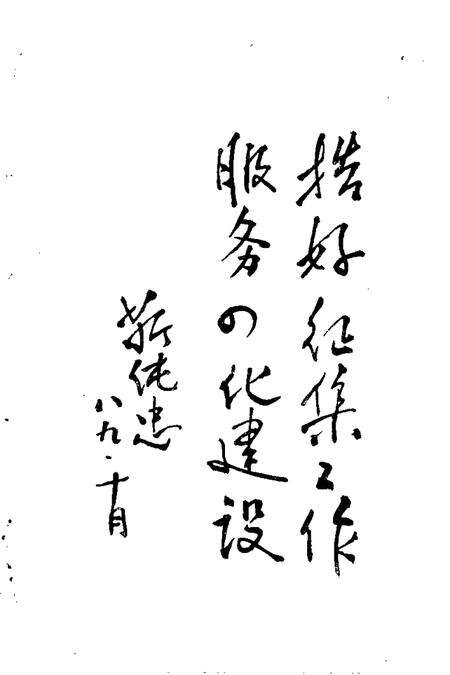 搞好征集工作
服务四化建设
靳纯忠
八九·十月